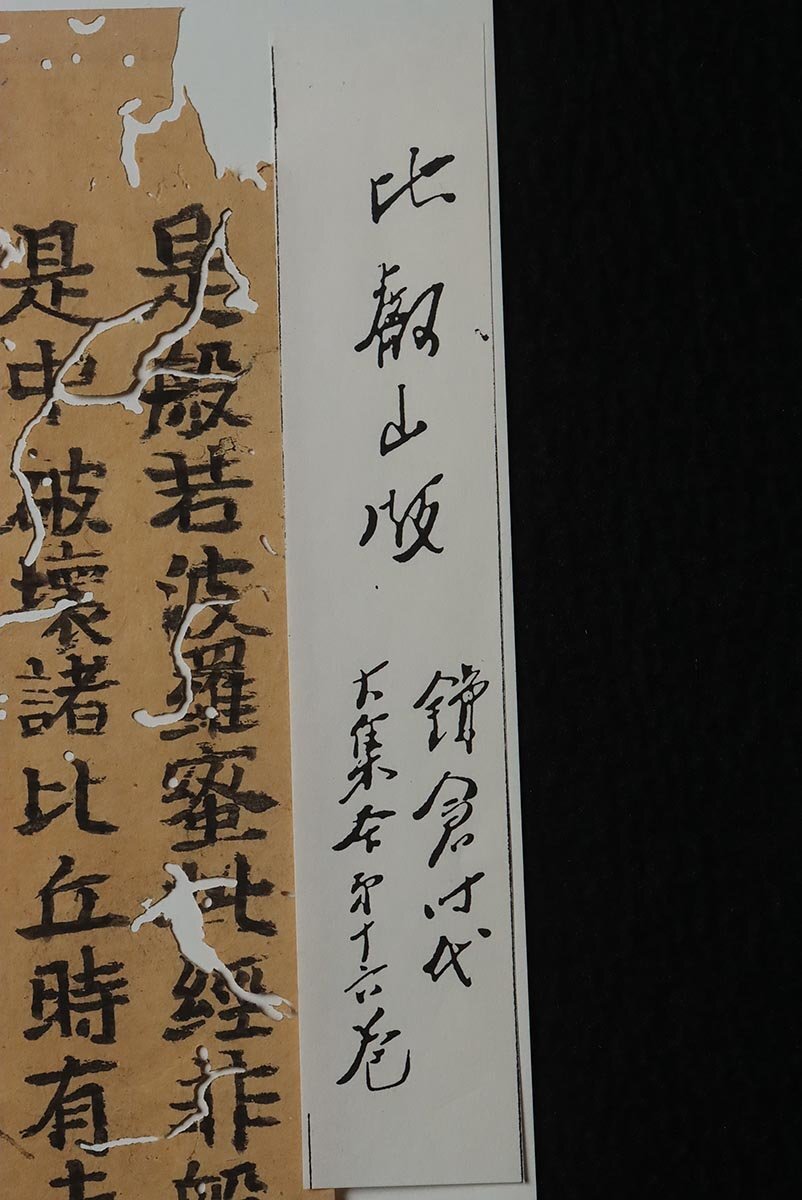 比叡山版
鎌倉時代
大集本第十六巻
是般若波羅蜜此經非般
是中破壞諸比丘時有